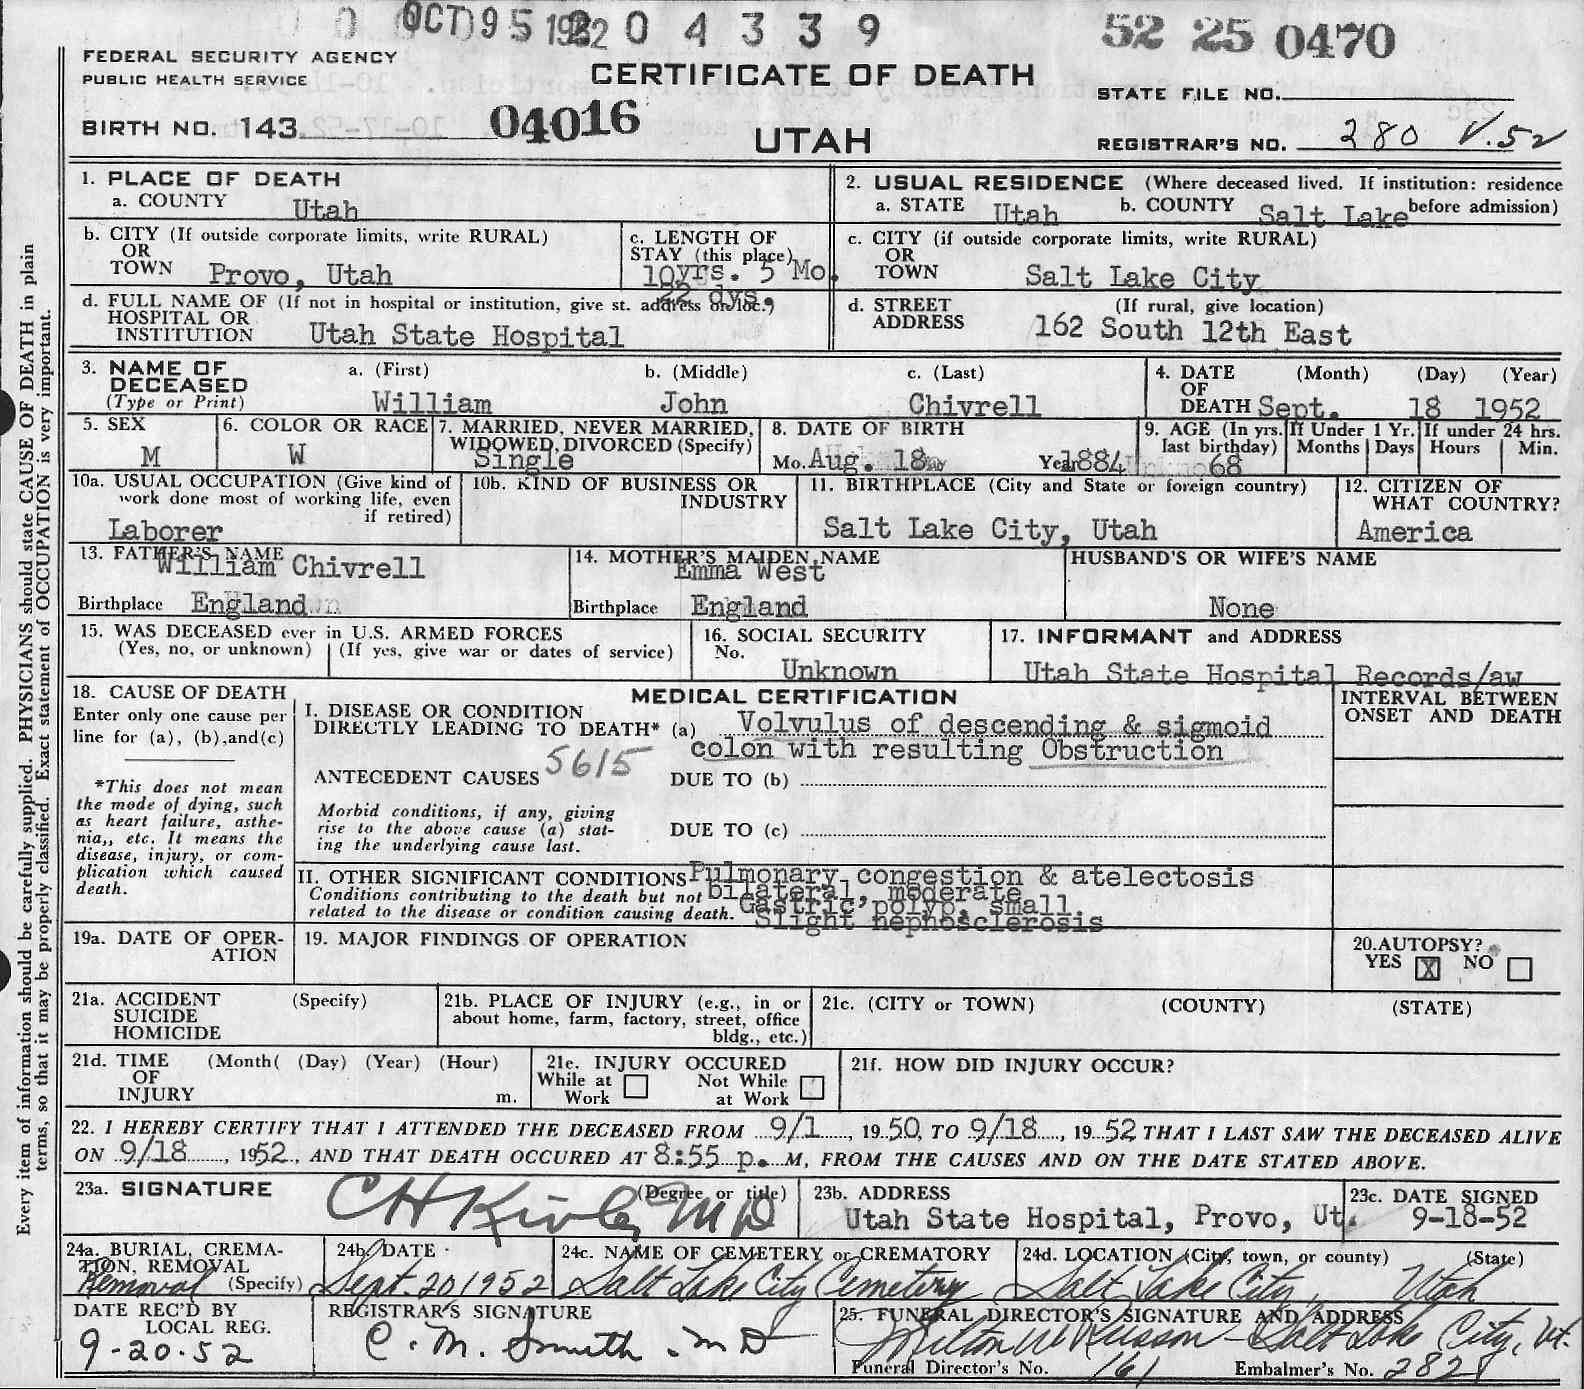 OCT 9 5 1952 2 0 4 3 3 9
52 25 0470
FEDERAL SECURITY AGENCY
PUBLIC HEALTH SERVICE
CERTIFICATE OF DEATH
STATE FILE NO.
BIRTH NO. 143. 04016
UTAH
REGISTRAR'S NO. 280 V.52
1. PLACE OF DEATH
a. COUNTY Utah
2. USUAL RESIDENCE (Where deceased lived. If institution: residence before admission)
a. STATE Utah b. COUNTY Salt Lake
b. CITY (If outside corporate limits, write RURAL)
OR
TOWN Provo, Utah
c. LENGTH OF
STAY (this place)
10yrs. 5 Mo.
22 dys.
c. CITY (if outside corporate limits, write RURAL)
OR
TOWN Salt Lake City
d. FULL NAME OF (If not in hospital or institution, give st. address or loc.)
HOSPITAL OR
INSTITUTION Utah State Hospital
d. STREET (If rural, give location)
ADDRESS 162 South 12th East
3. NAME OF
DECEASED
(Type or Print)
a. (First) b. (Middle) c. (Last)
William John Chivrell
4. DATE (Month) (Day) (Year)
OF
DEATH Sept. 18 1952
5. SEX
M
6. COLOR OR RACE
W
7. MARRIED, NEVER MARRIED,
WIDOWED, DIVORCED (Specify)
Single
8. DATE OF BIRTH
Mo. Aug. 18 Year 1884
9. AGE (In yrs. last birthday)
68
If Under 1 Yr.
Months Days
If under 24 hrs.
Hours Min.
10a. USUAL OCCUPATION (Give kind of
work done most of working life, even
if retired)
Laborer
10b. KIND OF BUSINESS OR
INDUSTRY
11. BIRTHPLACE (City and State or foreign country)
Salt Lake City, Utah
12. CITIZEN OF
WHAT COUNTRY?
America
13. FATHER'S NAME
William Chivrell
Birthplace England
14. MOTHER'S MAIDEN NAME
Emma West
Birthplace England
HUSBAND'S OR WIFE'S NAME
None
15. WAS DECEASED ever in U.S. ARMED FORCES
(Yes, no, or unknown) (If yes, give war or dates of service)
16. SOCIAL SECURITY
No.
Unknown
17. INFORMANT and ADDRESS
Utah State Hospital Records/aw
18. CAUSE OF DEATH
Enter only one cause per
line for (a), (b),and(c)
*This does not mean
the mode of dying, such
as heart failure, asthe-
nia,, etc. It means the
disease, injury, or com-
plication which caused
death.
MEDICAL CERTIFICATION
INTERVAL BETWEEN
ONSET AND DEATH
I. DISEASE OR CONDITION
DIRECTLY LEADING TO DEATH* (a) Volvulus of descending & sigmoid
colon with resulting Obstruction
5615
ANTECEDENT CAUSES DUE TO (b)
Morbid conditions, if any, giving
rise to the above cause (a) stat-
ing the underlying cause last.
DUE TO (c)
II. OTHER SIGNIFICANT CONDITIONS
Conditions contributing to the death but not
related to the disease or condition causing death.
Pulmonary congestion & atelectosis
bilateral, moderate
Gastric polyp, small
Slight nephosclerosis
19a. DATE OF OPER-
ATION
19. MAJOR FINDINGS OF OPERATION
20.AUTOPSY?
YES X NO
21a. ACCIDENT (Specify)
SUICIDE
HOMICIDE
21b. PLACE OF INJURY (e.g., in or
about home, farm, factory, street, office
bldg., etc.)
21c. (CITY or TOWN) (COUNTY) (STATE)
21d. TIME (Month( (Day) (Year) (Hour)
OF
INJURY m.
21e. INJURY OCCURED
While at Work Not While at Work
21f. HOW DID INJURY OCCUR?
22. I HEREBY CERTIFY THAT I ATTENDED THE DECEASED FROM 9/1, 19 50, TO 9/18, 19 52 THAT I LAST SAW THE DECEASED ALIVE
ON 9/18, 1952, AND THAT DEATH OCCURED AT 8:55 p. M, FROM THE CAUSES AND ON THE DATE STATED ABOVE.
23a. SIGNATURE (Degree or title)
C H MD
23b. ADDRESS
Utah State Hospital, Provo, Ut.
23c. DATE SIGNED
9-18-52
24a. BURIAL, CREMA-
TION, REMOVAL
Removal (Specify)
24b. DATE
Sept. 20 1952
24c. NAME OF CEMETERY or CREMATORY
Salt Lake City Cemetery
24d. LOCATION (City, town, or county) (State)
Salt Lake City, Utah
DATE REC'D BY
LOCAL REG.
9-20-52
REGISTRAR'S SIGNATURE
C. M. Smith MD
25. FUNERAL DIRECTOR'S SIGNATURE AND ADDRESS
Milton Salt Lake City, Ut.
Funeral Director's No. 161 Embalmer's No. 282
Every item of information should be carefully supplied. PHYSICIANS should state CAUSE OF DEATH in plain
terms, so that it may be properly classified. Exact statement of OCCUPATION is very important.